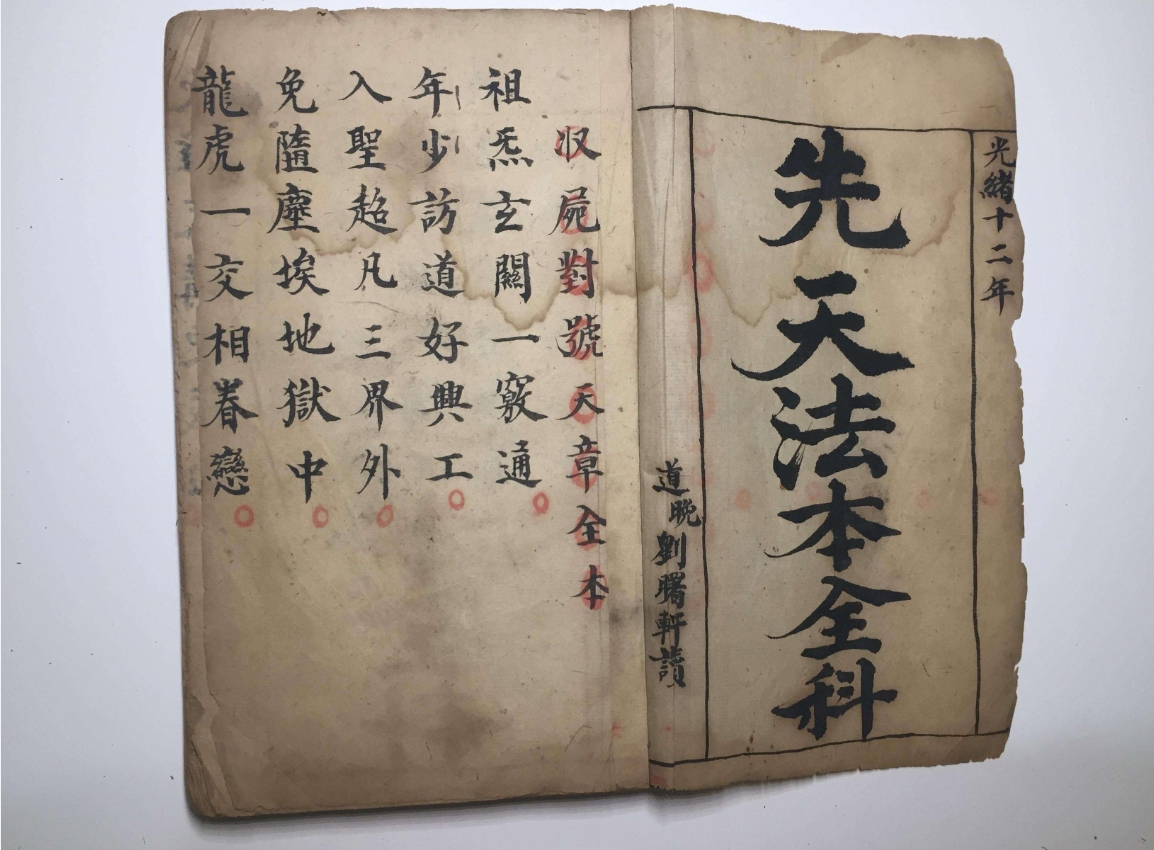 光緒十二年
先天法本全科
道晚劉曙軒讀
収屍對號天章全本
祖炁玄關一竅通
年少訪道好興工
入聖超凡三界外
免隨塵埃地獄中
龍虎一交相眷戀